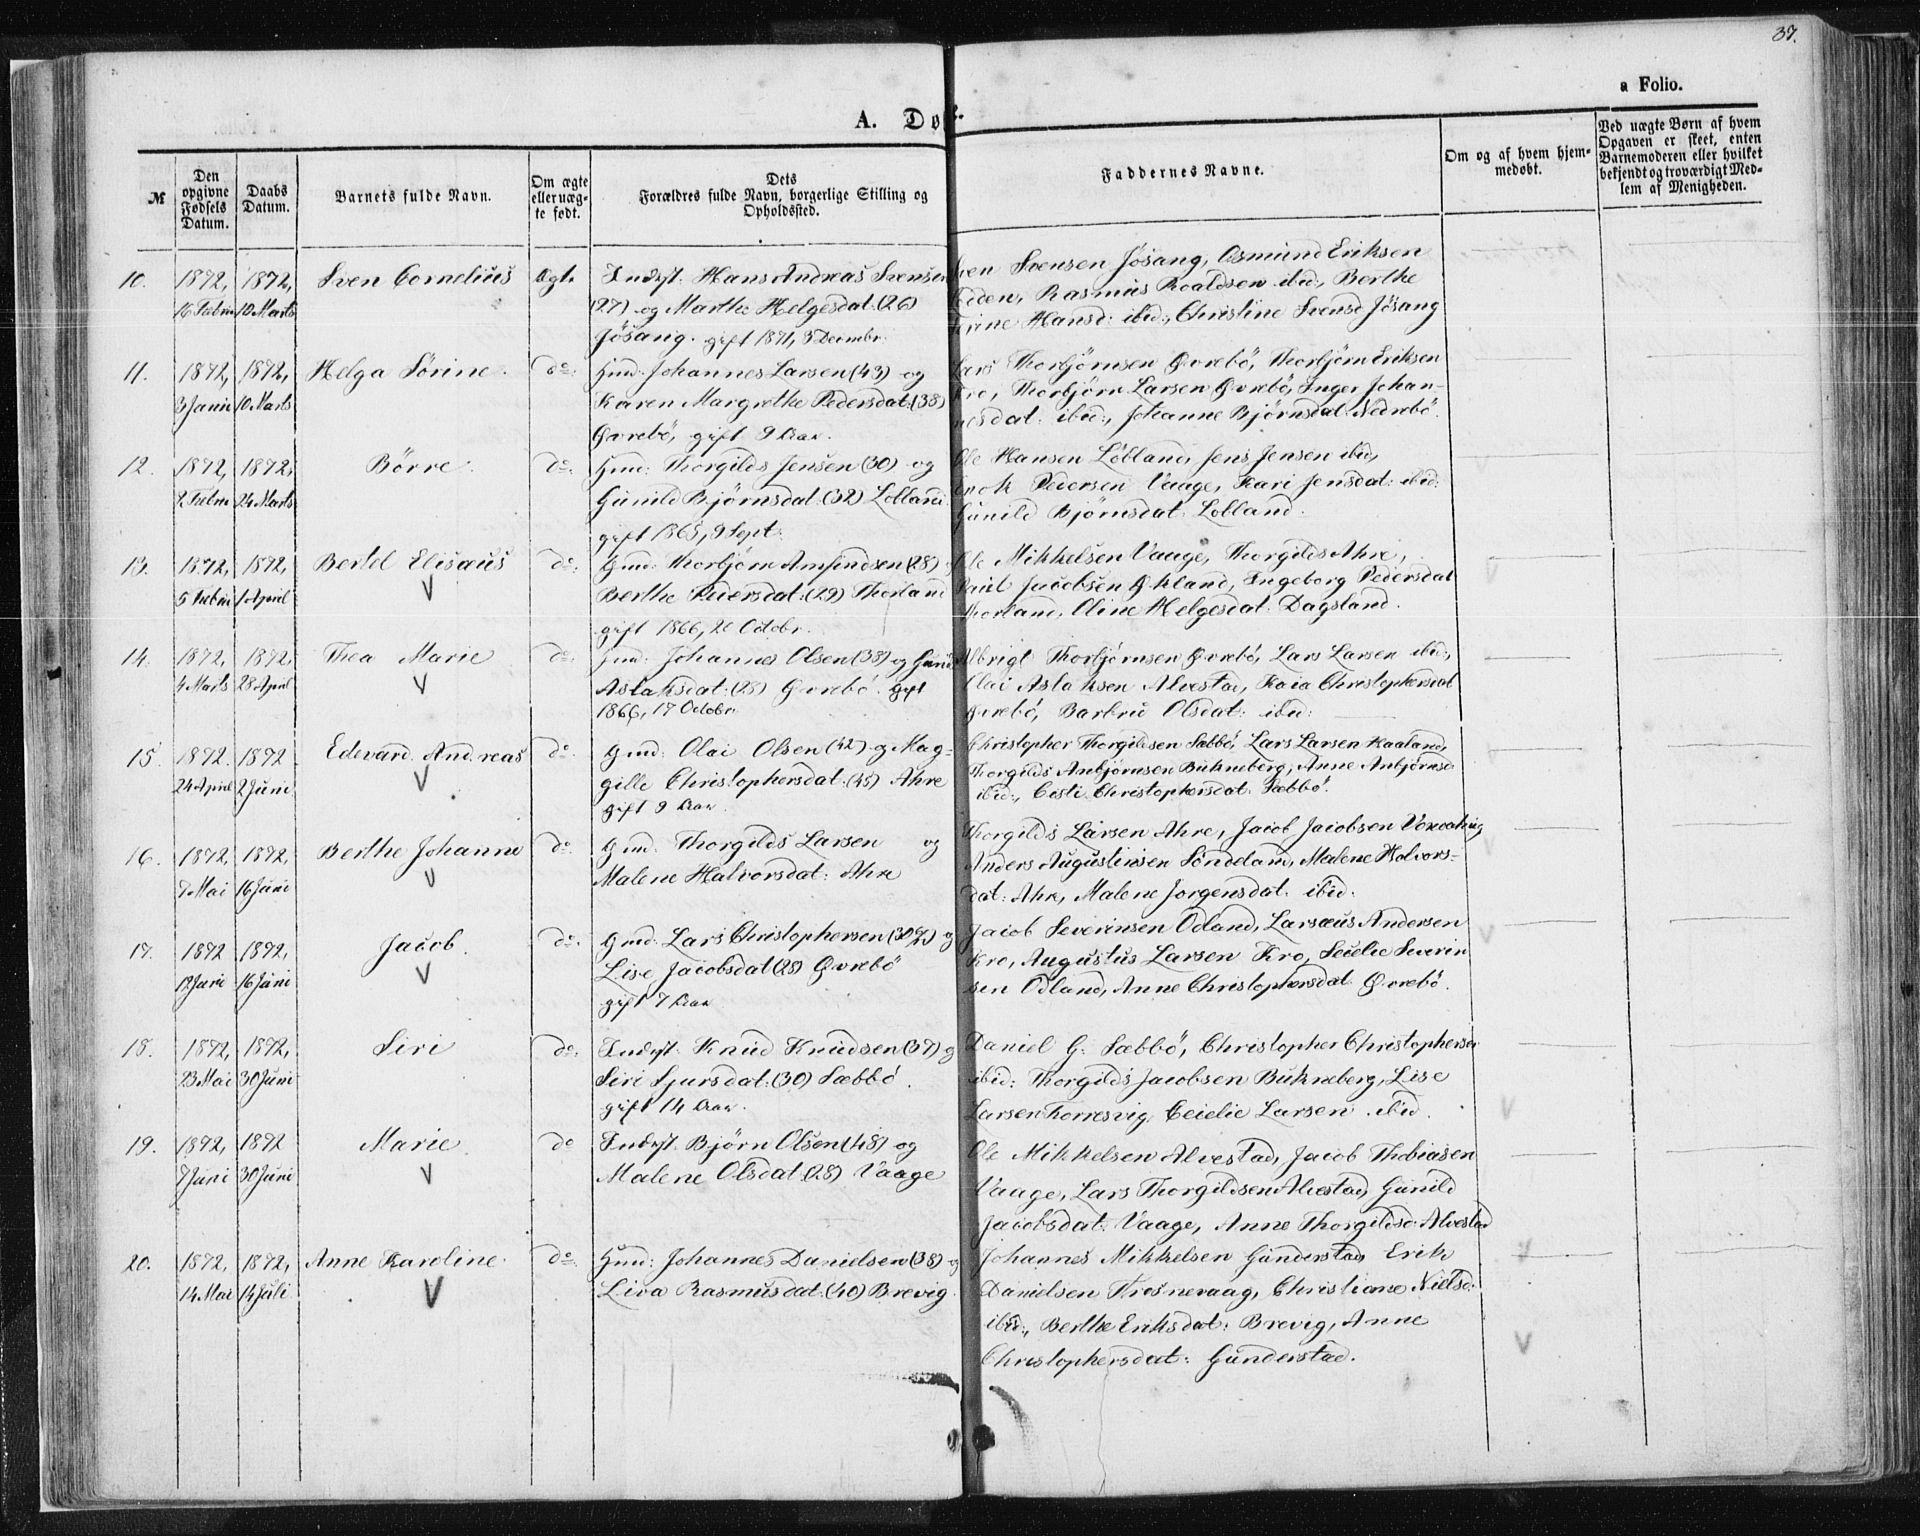 37.
a Folio.
A. Døbte
№
Den opgivne Fødsels Datum.
Daabs Datum.
Barnets fulde Navn.
Om ægte eller uægte født.
Dets Forældres fulde Navn, borgerlige Stilling og Opholdssted.
Faddernes Navne.
Om og af hvem hjemmedøbt.
Ved uægte Børn af hvem Opgaven er skeet, enten Barnemoderen eller hvilket bekjendt og troværdigt Medlem af Menigheden.
10. 1872, 1872, Sven Cornelius Ægte Indryt. Hans Andreas Svensen
16 Febru 10 Marts (27) og Marthe Helgesdat: (26)
Jösang. gift 1871, 3 Decembr.
Sven Svensen Jösang, Osmund Eriksen
ibiden, Rasmus Roaldsen ibid:, Berthe
Serine Hansd: ibid:, Christine Svensd Jösang
11. 1872, 1872, Helga Sörine do: Gmd: Johannes Larsen (43) og
3 Janu 10 Marts Karen Margrethe Pedersdat: (38)
Øvrebö, gift 9 Aar.
Lars Thorbjörnsen Øvrebö, Thorbjörn Eriksen
Kro, Thorbjörn Larsen Øvrebö, Inger Johan-
nesdat: ibid:, Johanne Björnsdat: Nedrebö.
12. 1872, 1872, Börre. do: Gmd: Thorgilds Jensen (30) og
2 Febru 24 Marts Gunild Björnsdat: (32) Lolland
gift 1865, 9 Sept.
Ole Hansen Löbland, Jens Jensen ibid,
Enok Pedersen Vaage, Kari Jensdat: ibid:
Gunild Björnsdat: Lolland.
13. 1872, 1872, Bertel Elisæus do: Gmd: Thorbjörn Amundsen (28)
5 Febru 1 April Berthe Pedersdat: (29) Thorland
gift 1866, 20 Octobr.
Ole Mikkelsen Vaage, Thorgilds Ahre,
Paul Jacobsen Økland, Ingeborg Pedersdat
Thorland, Oline Helgesdat: Dagsland.
14. 1872, 1872, Thea Marie do: Gmd: Johannes Olsen (38) og Gunild
4 Marts 28 April Aslaksdat: (28) Øvrebö. gift
1866, 17 Octobr.
Albrigt Thorbjörnsen Øvrebö, Lars Larsen ibid:,
Olai Aslaksen Alvestad, Kaia Christophersdat
Øvrebö, Barbru Olsdat: ibid:
15. 1872. 1872 Edevard Andreas do Gmd: Olai Olsen (42) og Mag-
24 April 2 Juni gille Christophersdat: (45) Ahre
gift 9 Aar.
Christopher Thorgildsen Sæbbö, Lars Larsen Kaaland,
Thorgilds Anbjörnsen Bukneberg, Anne Anbjörnsd
ibid:, Cisti Christophersdat: Sæbbö.
16. 1872, 1872, Berthe Johanne do: Gmd: Thorgilds Larsen og
7 Mai 16 Juni Malene Halvorsdat: Ahre
Thorgilds Larsen Ahre, Jacob Jacobsen
Anders Augustinsen Söndelam, Malene Halvors-
dat: Ahre, Malene Jorgensdat: ibid.
17. 1872 1872, Jacob. do: Gmd: Lars Christophersen og
12 Juni 16 Juni Lise Jacobsdat (28) Øvrebö
gift 7 Aar
Jacob Severinsen Odland, Larsæus Andersen
Kro, Augustus Larsen Kro, Seielie Severin
sen Odland, Anne Christophersdat Øvrebö.
18. 1872, 1872, Siri do: Indryt: Knud Knudsen (37) og
23 Mai 30 Juni Siri Sjursdat: (30) Sæbbö.
gift 14 Aar.
Daniel G. Sæbbö, Christopher Christophersen
ibid: Thorgilds Jacobsen Bukneberg, Lise
Larsen Torresvig, Ceielie Larsen ibid.
19. 1872, 1872 Marie do Indryt. Björn Olsen (48) og
7 Juni 30 Juni Malene Olsdat (28) Vaage
Ole Mikkelsen Alvestad, Jacob Thobiasen
Vaage, Lars Thorgildsen Alvestad, Gunild
Jacobsdat: Vaage, Anne Thorgildsd: Alvestad
20. 1872, 1872, Anne Karoline. do: Gmd: Johannes Danielsen (38) og
14 Mai 14 Juli Liva Rasmusdat: (40) Brevig.
Johannes Mikkelsen Gunderstad, Erik
Danielsen Krosnevaag, Christiane Nielsd:
ibid:, Berthe Eriksdat: Brevig, Anne
Christophersdat: Gunderstad.